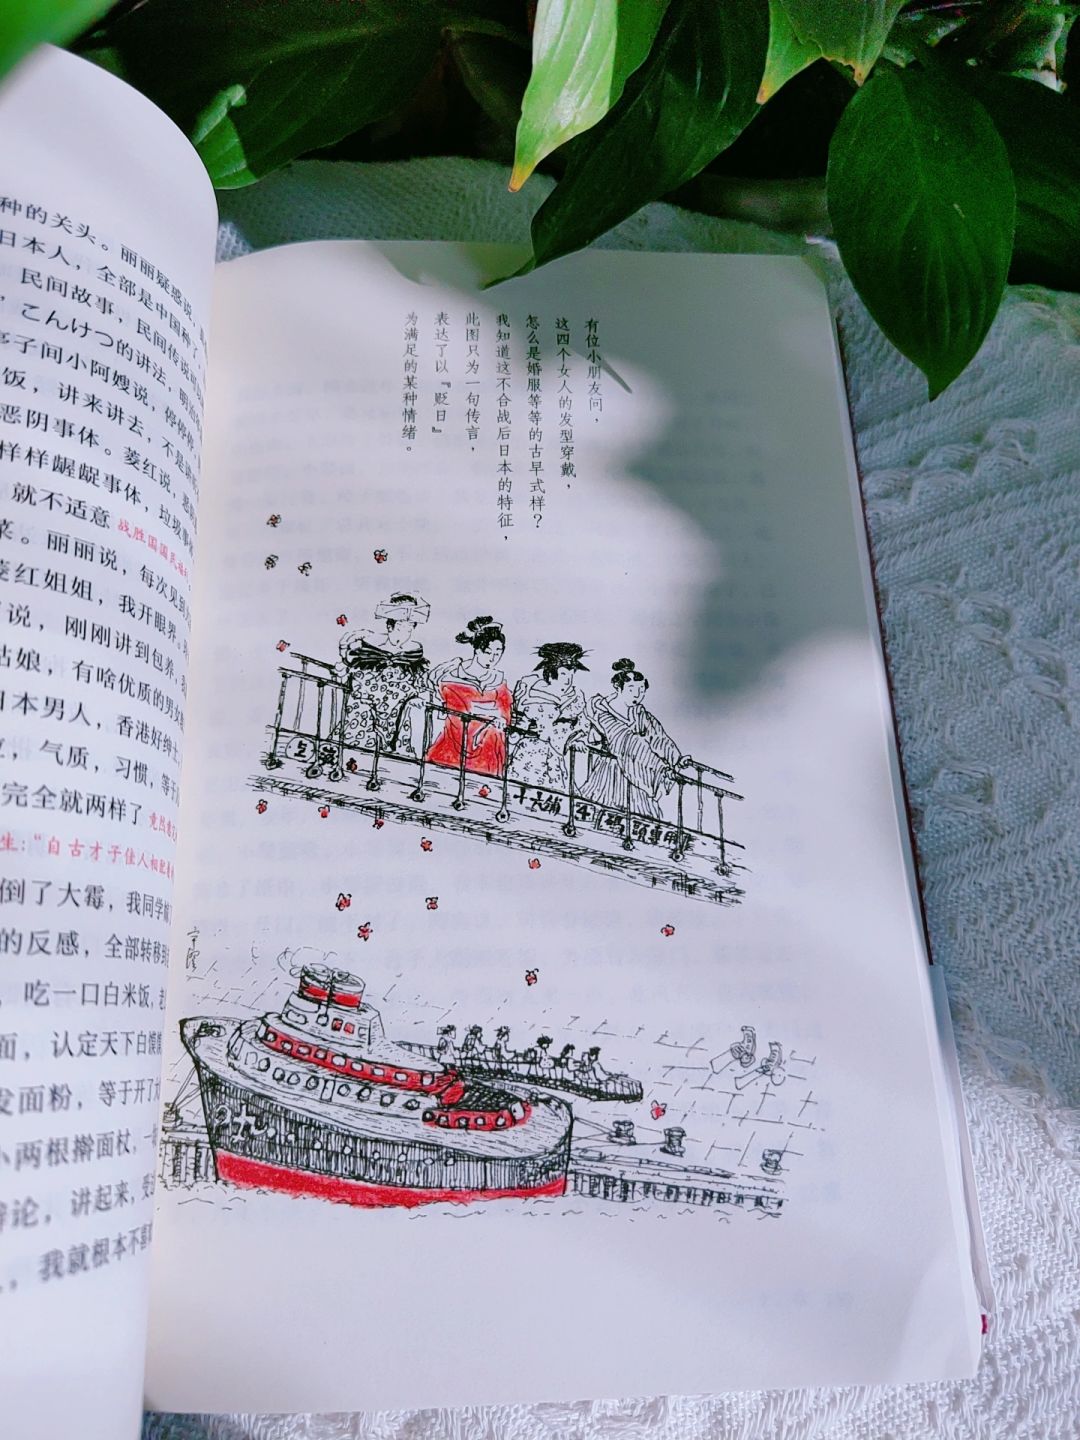 种的关头。丽丽疑惑说，
日本人，全部是中国种了，
民间故事，民间传说可以
，こんけつ的讲法，明治
亭子间小阿嫂说，停停停，
饭，讲来讲去，不是讲
恶阴事体。菱红说，
样样龌龊事体，垃圾事
就不适意 战胜国国民
菜。丽丽说，每次见到
菱红姐姐，我开眼界。
说，刚刚讲到包养，
姑娘，有啥优质的男
日本男人，香港好绅士，
，气质，习惯，等于
完全就两样了 竟然
生："自古才子佳人相配
倒了大霉，我同学
的反感，全部转移到
，吃一口白米饭，
面，认定天下白馍
发面粉，等于开了
小两根擀面杖，一
辩论，讲起来，受
，我就根本不喜
有位小朋友问，
这四个女人的发型穿戴，
怎么是婚服等等的古早式样？
我知道这不合战后日本的特征，
此图只为一句传言，
表达了以『贬日』
为满足的某种情绪。
上海
十六铺
宇澄